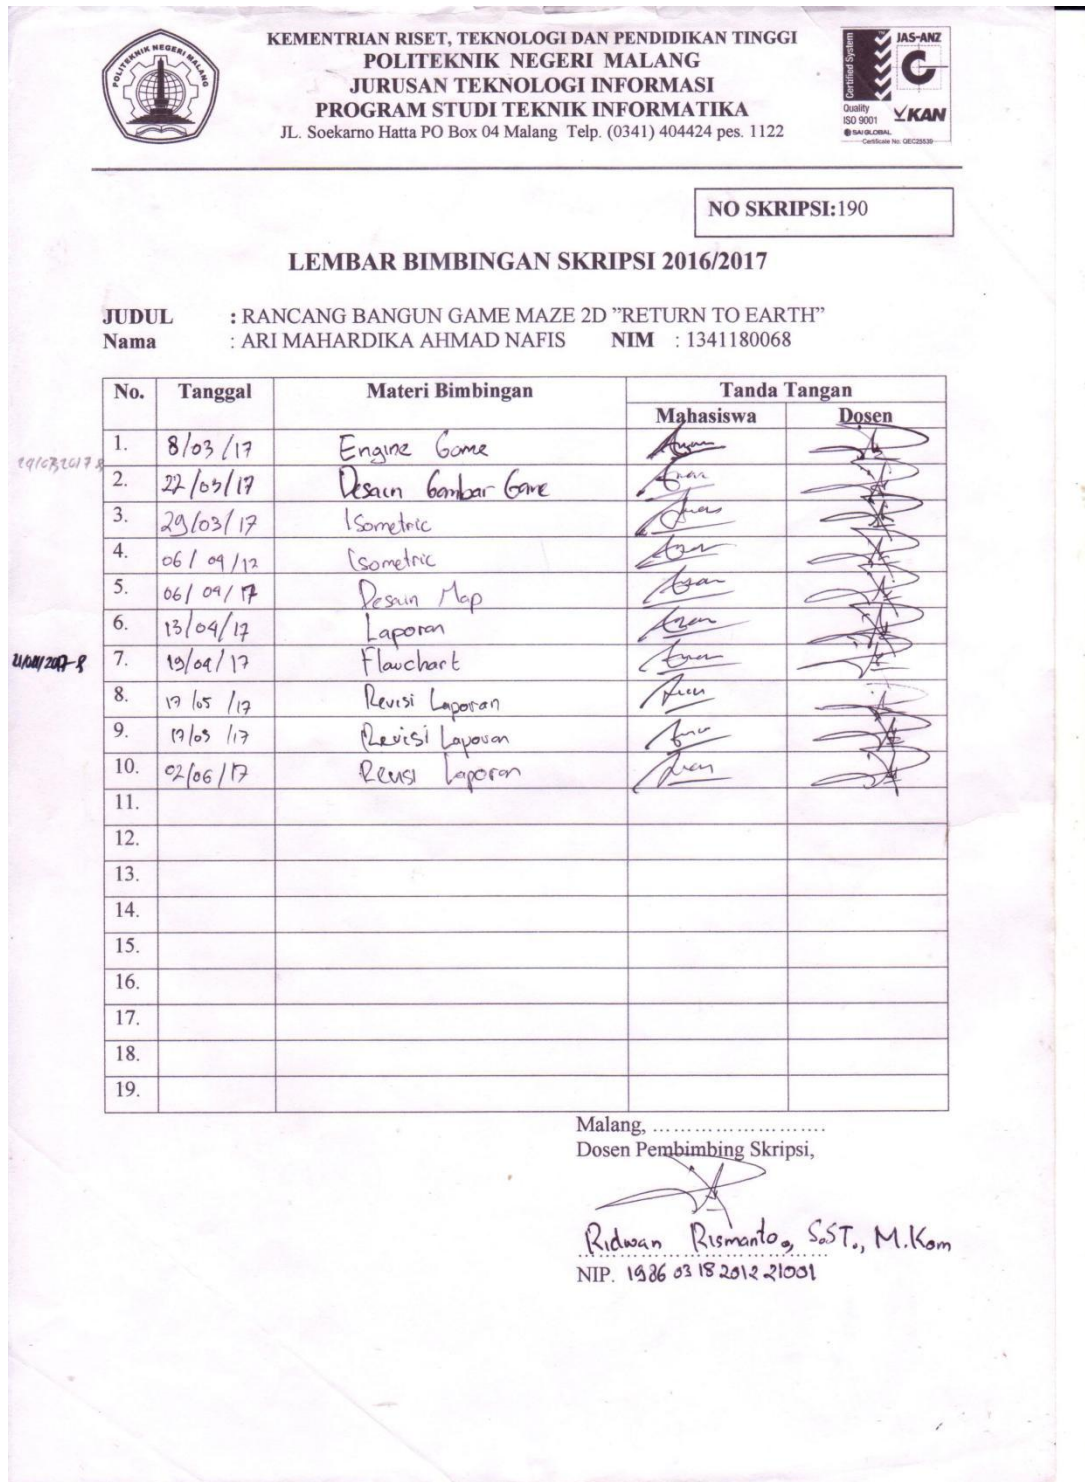 POLITEKNIK NEGERI MALANG
KEMENTRIAN RISET, TEKNOLOGI DAN PENDIDIKAN TINGGI
POLITEKNIK NEGERI MALANG
JURUSAN TEKNOLOGI INFORMASI
PROGRAM STUDI TEKNIK INFORMATIKA
JL. Soekarno Hatta PO Box 04 Malang Telp. (0341) 404424 pes. 1122
Certified System
JAS-ANZ
Quality
ISO 9001
KAN
SAI GLOBAL
Certificate No: QEC25530
NO SKRIPSI:190
LEMBAR BIMBINGAN SKRIPSI 2016/2017
JUDUL : RANCANG BANGUN GAME MAZE 2D "RETURN TO EARTH"
Nama : ARI MAHARDIKA AHMAD NAFIS NIM : 1341180068
No. Tanggal Materi Bimbingan Tanda Tangan
Mahasiswa Dosen
1. 8/03/17 Engine Game
2. 22/03/17 Desain Gambar Game
3. 29/03/17 Isometric
4. 06/04/17 Isometric
5. 06/04/17 Desain Map
6. 13/04/17 Laporan
7. 19/04/17 Flowchart
8. 17/05/17 Revisi Laporan
9. 17/05/17 Revisi Laporan
10. 02/06/17 Revisi Laporan
11.
12.
13.
14.
15.
16.
17.
18.
19.
Malang, ........................
Dosen Pembimbing Skripsi,
Ridwan Rismanto, S.ST., M.Kom
NIP. 19860318 2012 21001